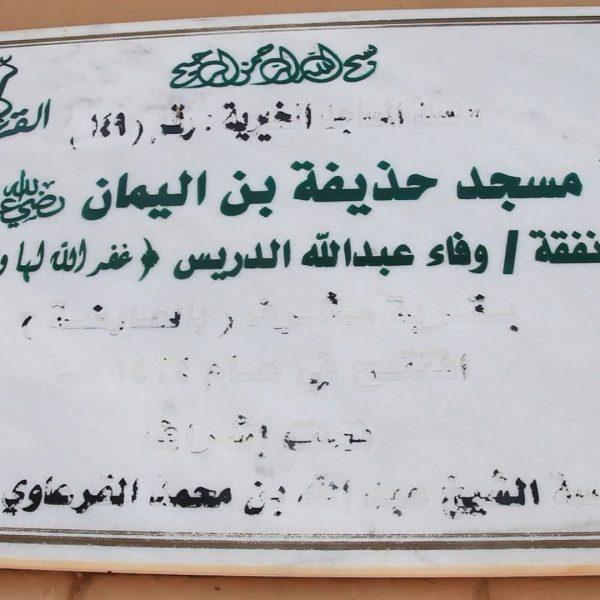 بسم الله الرحمن الرحيم
سلسلة المساجد الخيرية رقم (١٤٩)
مسجد حذيفة بن اليمان رضي الله
نفقة / وفاء عبدالله الدريس ﴿ غفر الله لها و
بقرية مشرف ( بالعارضة )
افتتح في عام ١٤٢٤ هـ
تحت إشراف
سة الشيخ عبد الله بن محمد القرعاوي